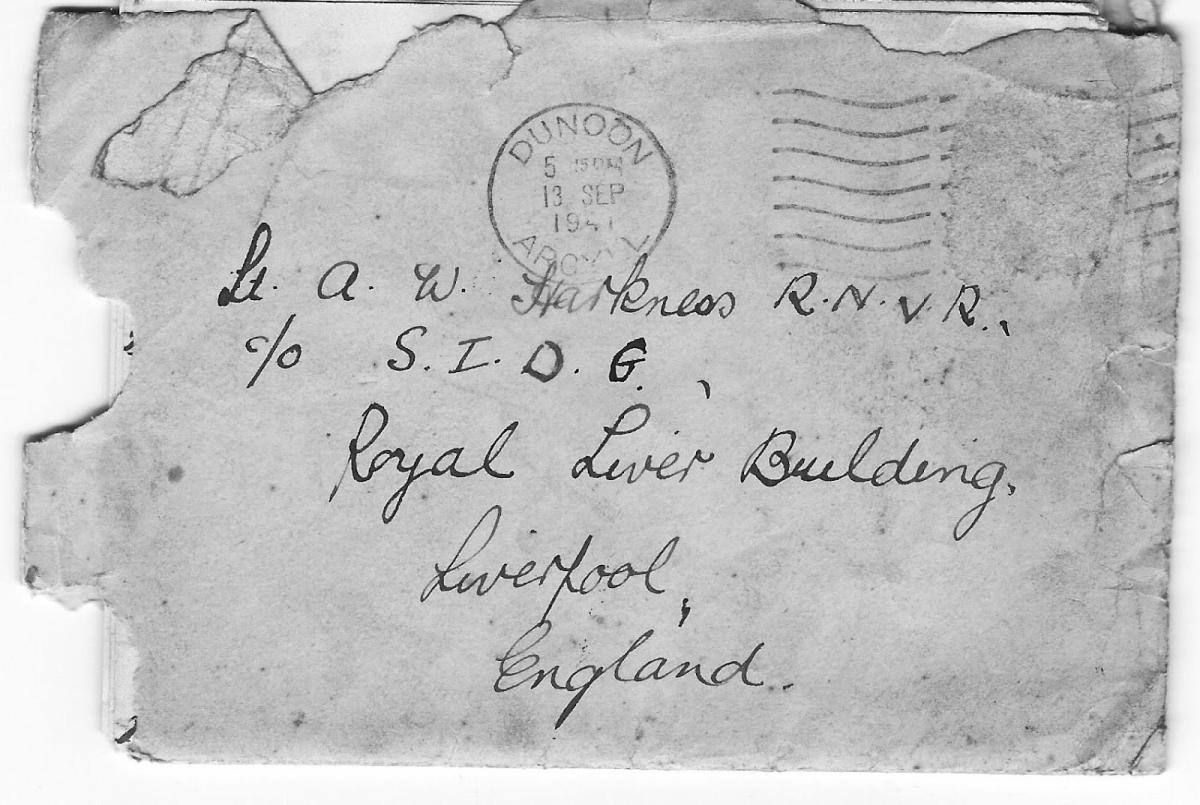 DUNOON
5 15PM
13 SEP
1941
ARGYLL
Lt. A. W. Harkness R.N.V.R.,
c/o S.I.D.G.,
Royal Liver Building,
Liverpool,
England.